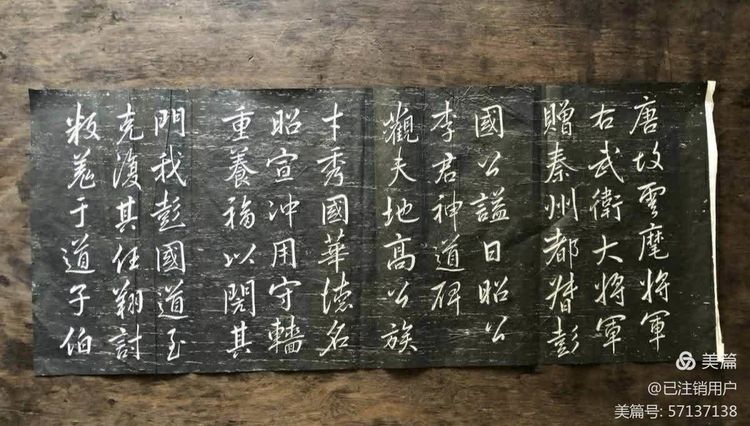 唐故雲麾將軍
右武衛大將軍
贈秦州都督彭
國公謚曰昭公
李君神道碑
觀夫地高公族
才秀國華德名
昭宣冲用守
重養福以閱其
門我彭國道至
克復其任翔討
叛羌于道子伯
美篇
@已注销用户
美篇号: 57137138